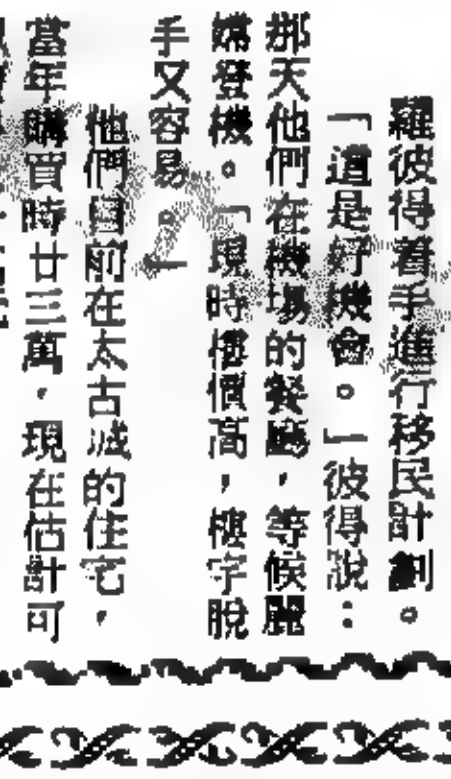 羅彼得着手進行移民計劃。
「這是好機會。」彼得說：
那天他們在機場的餐廳，等候麗
嫦登機。「現時樓價高，樓宇脫
手又容易。」
他們目前在太古城的住宅，
當年購買時廿三萬，現在估計可